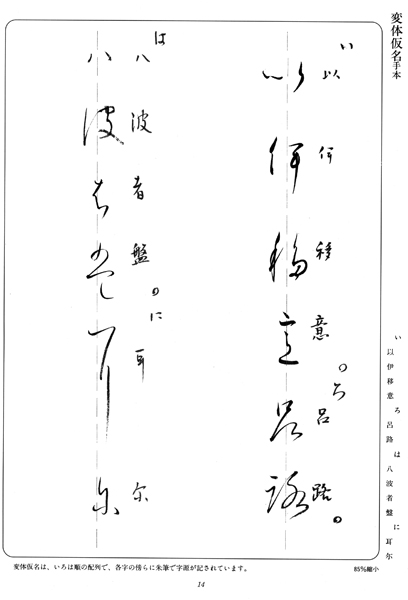 変体仮名手本
い
以 伊 移 意。ろ 呂 路。
以 伊 移 意 呂 路
は
八 波 者 盤。に 耳 尓
八 波 者 盤 耳 尓
い 以 伊 移 意 ろ 呂 路 は 八 波 者 盤 に 耳 尓
変体仮名は、いろは順の配列で、各字の傍らに朱筆で字源が記されています。
85%縮小
14